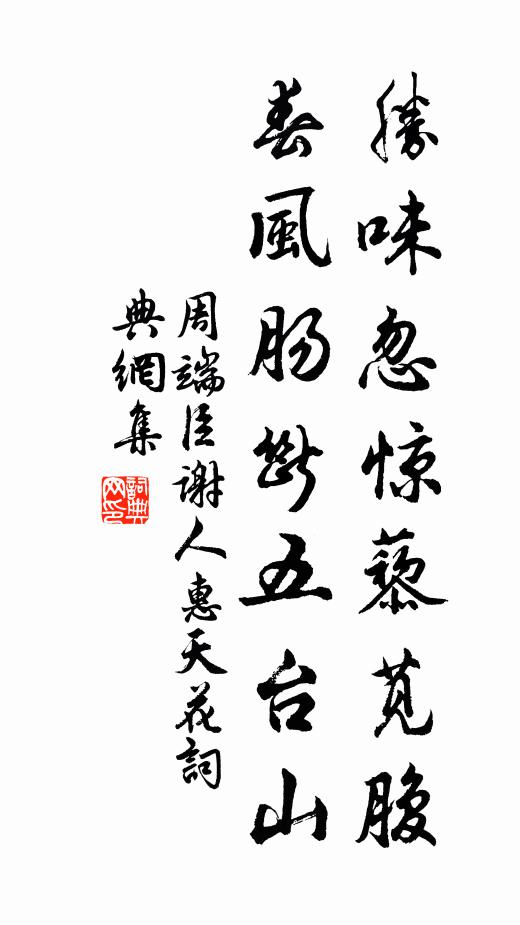 勝味忽惊藜苋腹
春風肠斷五台山
周端臣谢人惠天花詞
典網集
詞典网印